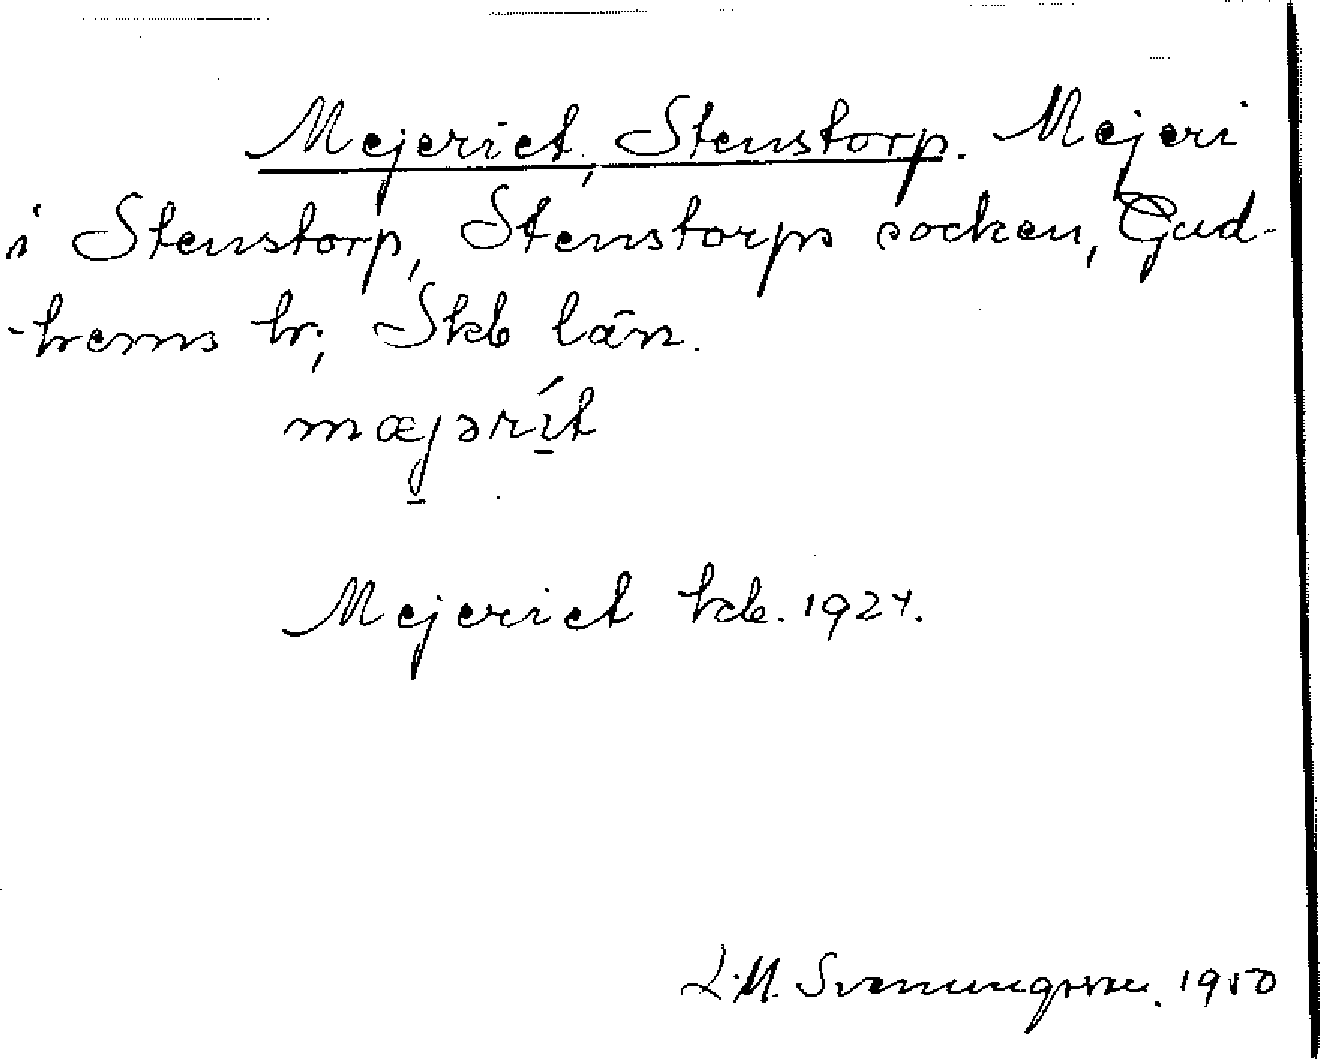 Mejeriet, Stenstorp. Mejeri
i Stenstorp, Stenstorps socken, Gud-
-hems hr; Skb län.
mæjərít
Mejeriet hdb. 1924.
L.M. Svenungsson. 1950